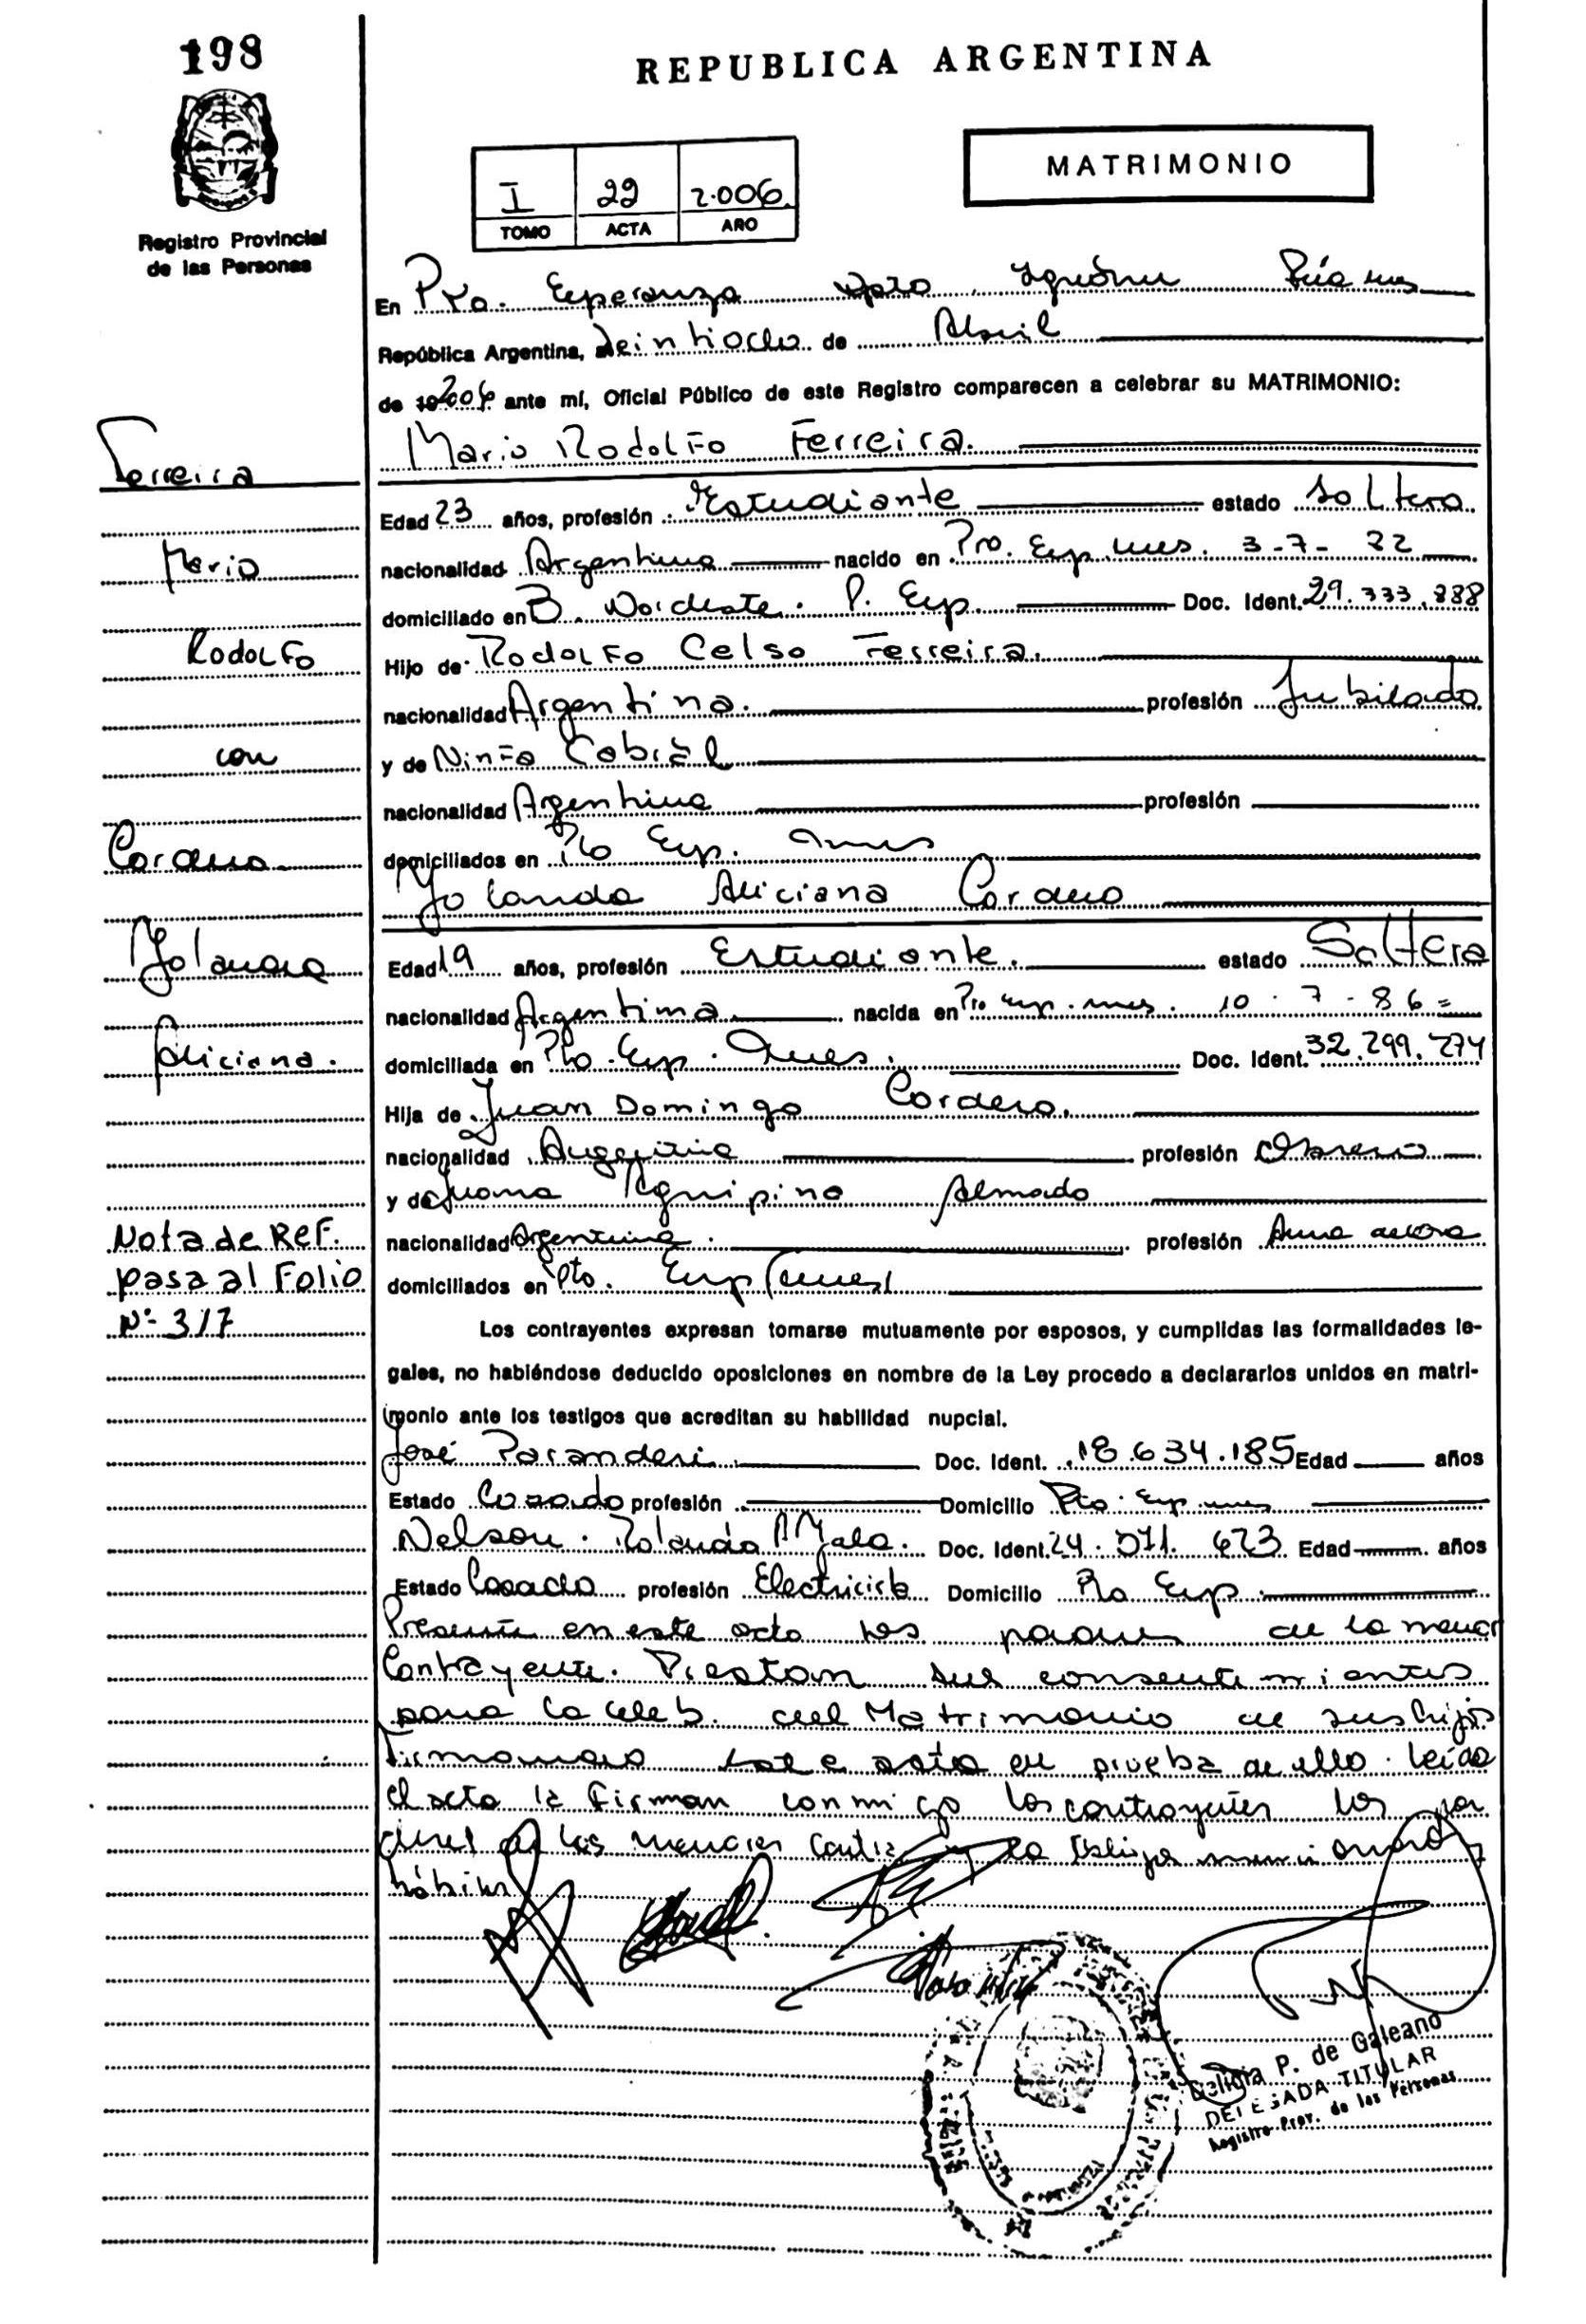 198
REPUBLICA ARGENTINA
MATRIMONIO
I 22 2.006
TOMO ACTA AÑO
Registro Provincial
de las Personas
En Pto. Esperanza Dpto. Iguazú
República Argentina, a veintiocho de Abril
de 19 2006 ante mí, Oficial Público de este Registro comparecen a celebrar su MATRIMONIO:
Ferreira
Mario
Rodolfo
con
Yolanda
Aliciana.
Nota de Ref.
pasa al Folio
Nº 317
Mario Rodolfo Ferreira.
Edad 23 años, profesión Estudiante estado Soltero
nacionalidad Argentina nacido en Pto. Esp. Mnes. 3-7-82
domiciliado en B. Nordeste. P. Esp. Doc. Ident. 29.333.888
Hijo de Rodolfo Celso Ferreira.
nacionalidad Argentina. profesión Jubilado
y de Ninfa Cabral
nacionalidad Argentina profesión
domiciliados en Pto Esp. Mnes
Yolanda Aliciana
Edad 19 años, profesión Estudiante. estado Soltera
nacionalidad Argentina nacida en Pto. Esp. Mnes. 10-7-86=
domiciliada en Pto. Esp. Mnes. Doc. Ident. 32.299.274
Hija de Juan Domingo Cordero.
nacionalidad Argentina profesión Obrero
y de Juana Agripina Almada
nacionalidad Argentina. profesión Ama de casa
domiciliados en Pto. Esp Mnes
Los contrayentes expresan tomarse mutuamente por esposos, y cumplidas las formalidades le-
gales, no habiéndose deducido oposiciones en nombre de la Ley procedo a declararlos unidos en matri-
monio ante los testigos que acreditan su habilidad nupcial.
José Doc. Ident. 18.634.185 Edad años
Estado Casado profesión Domicilio Pto. Esp. Mnes
Nelson Rolando Doc. Ident. 24.571.623 Edad años
Estado Casado profesión Electricista Domicilio Pto Esp.
Presente en este acto los padres de la menor
Contrayente. Prestan sus consentimientos
para la celeb. del Matrimonio de sus hijos
Firmando este acto en prueba de ello. Leído
el acta la firman conmigo los contrayentes los pa
dres de los menores y los testigos mencionados
hábiles
Delicia P. de Galeano
DELEGADA TITULAR
Registro Prov. de las Personas